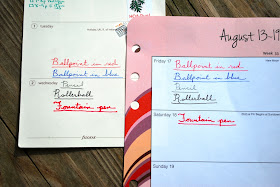 1 tuesday
2 wednesday
Ballpoint in red
Ballpoint in blue
Pencil
Rollerball
Fountain pen
August 13-19
Friday 17
Ballpoint in red
Ballpoint in blue
Pencil
Rollerball
Saturday 18
Fountain pen
Sunday 19